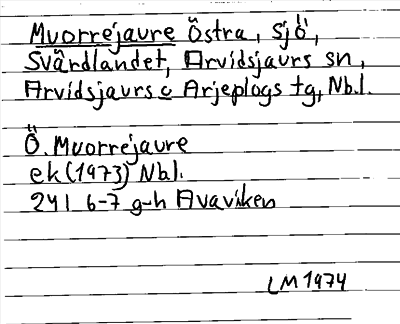 Muorrejaure Östra, sjö,
Svärdlandet, Arvidsjaurs sn,
Arvidsjaurs o Arjeplogs tg, Nb.l.
Ö. Muorrejaure
ek (1973) Nbl.
24I 6-7 g-h Avaviken
LM 1974